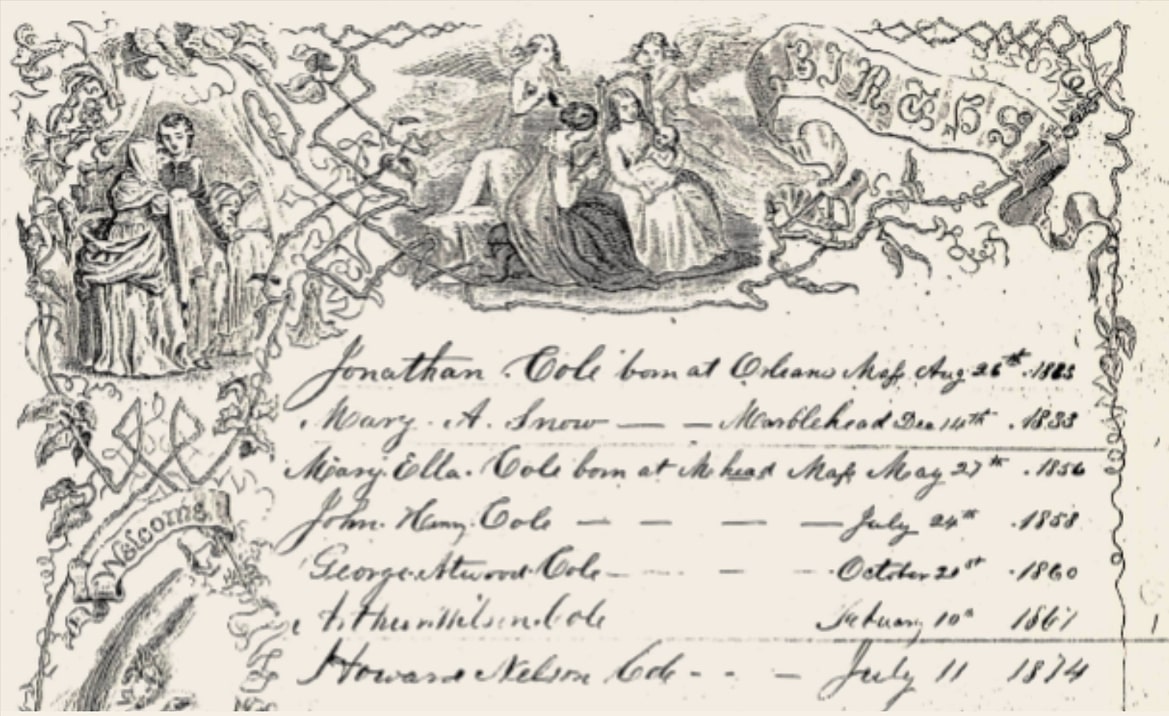 BIRTHS
Jonathan Cole born at Orleans Mass Aug 26th
Mary. A. Snow — — Marblehead Dec 14th .1833
Mary. Ella. Cole born at Mehead Mass May 27th .1856
John. Henry. Cole — — — — July 24th .1858
George Atwood Cole — — — October 21st .1860
Arthur Wilson Cole February 10th
Howard Nelson Cole - - — July 11 1874
Welcome.